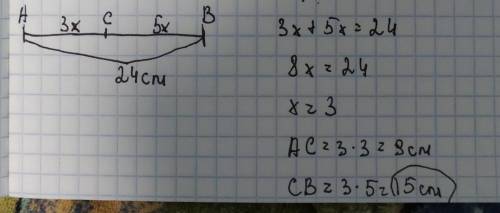 A 3x C 5x B
24см
3x + 5x = 24
8x = 24
x = 3
AC = 3 · 3 = 9см
CB = 3 · 5 = 15см